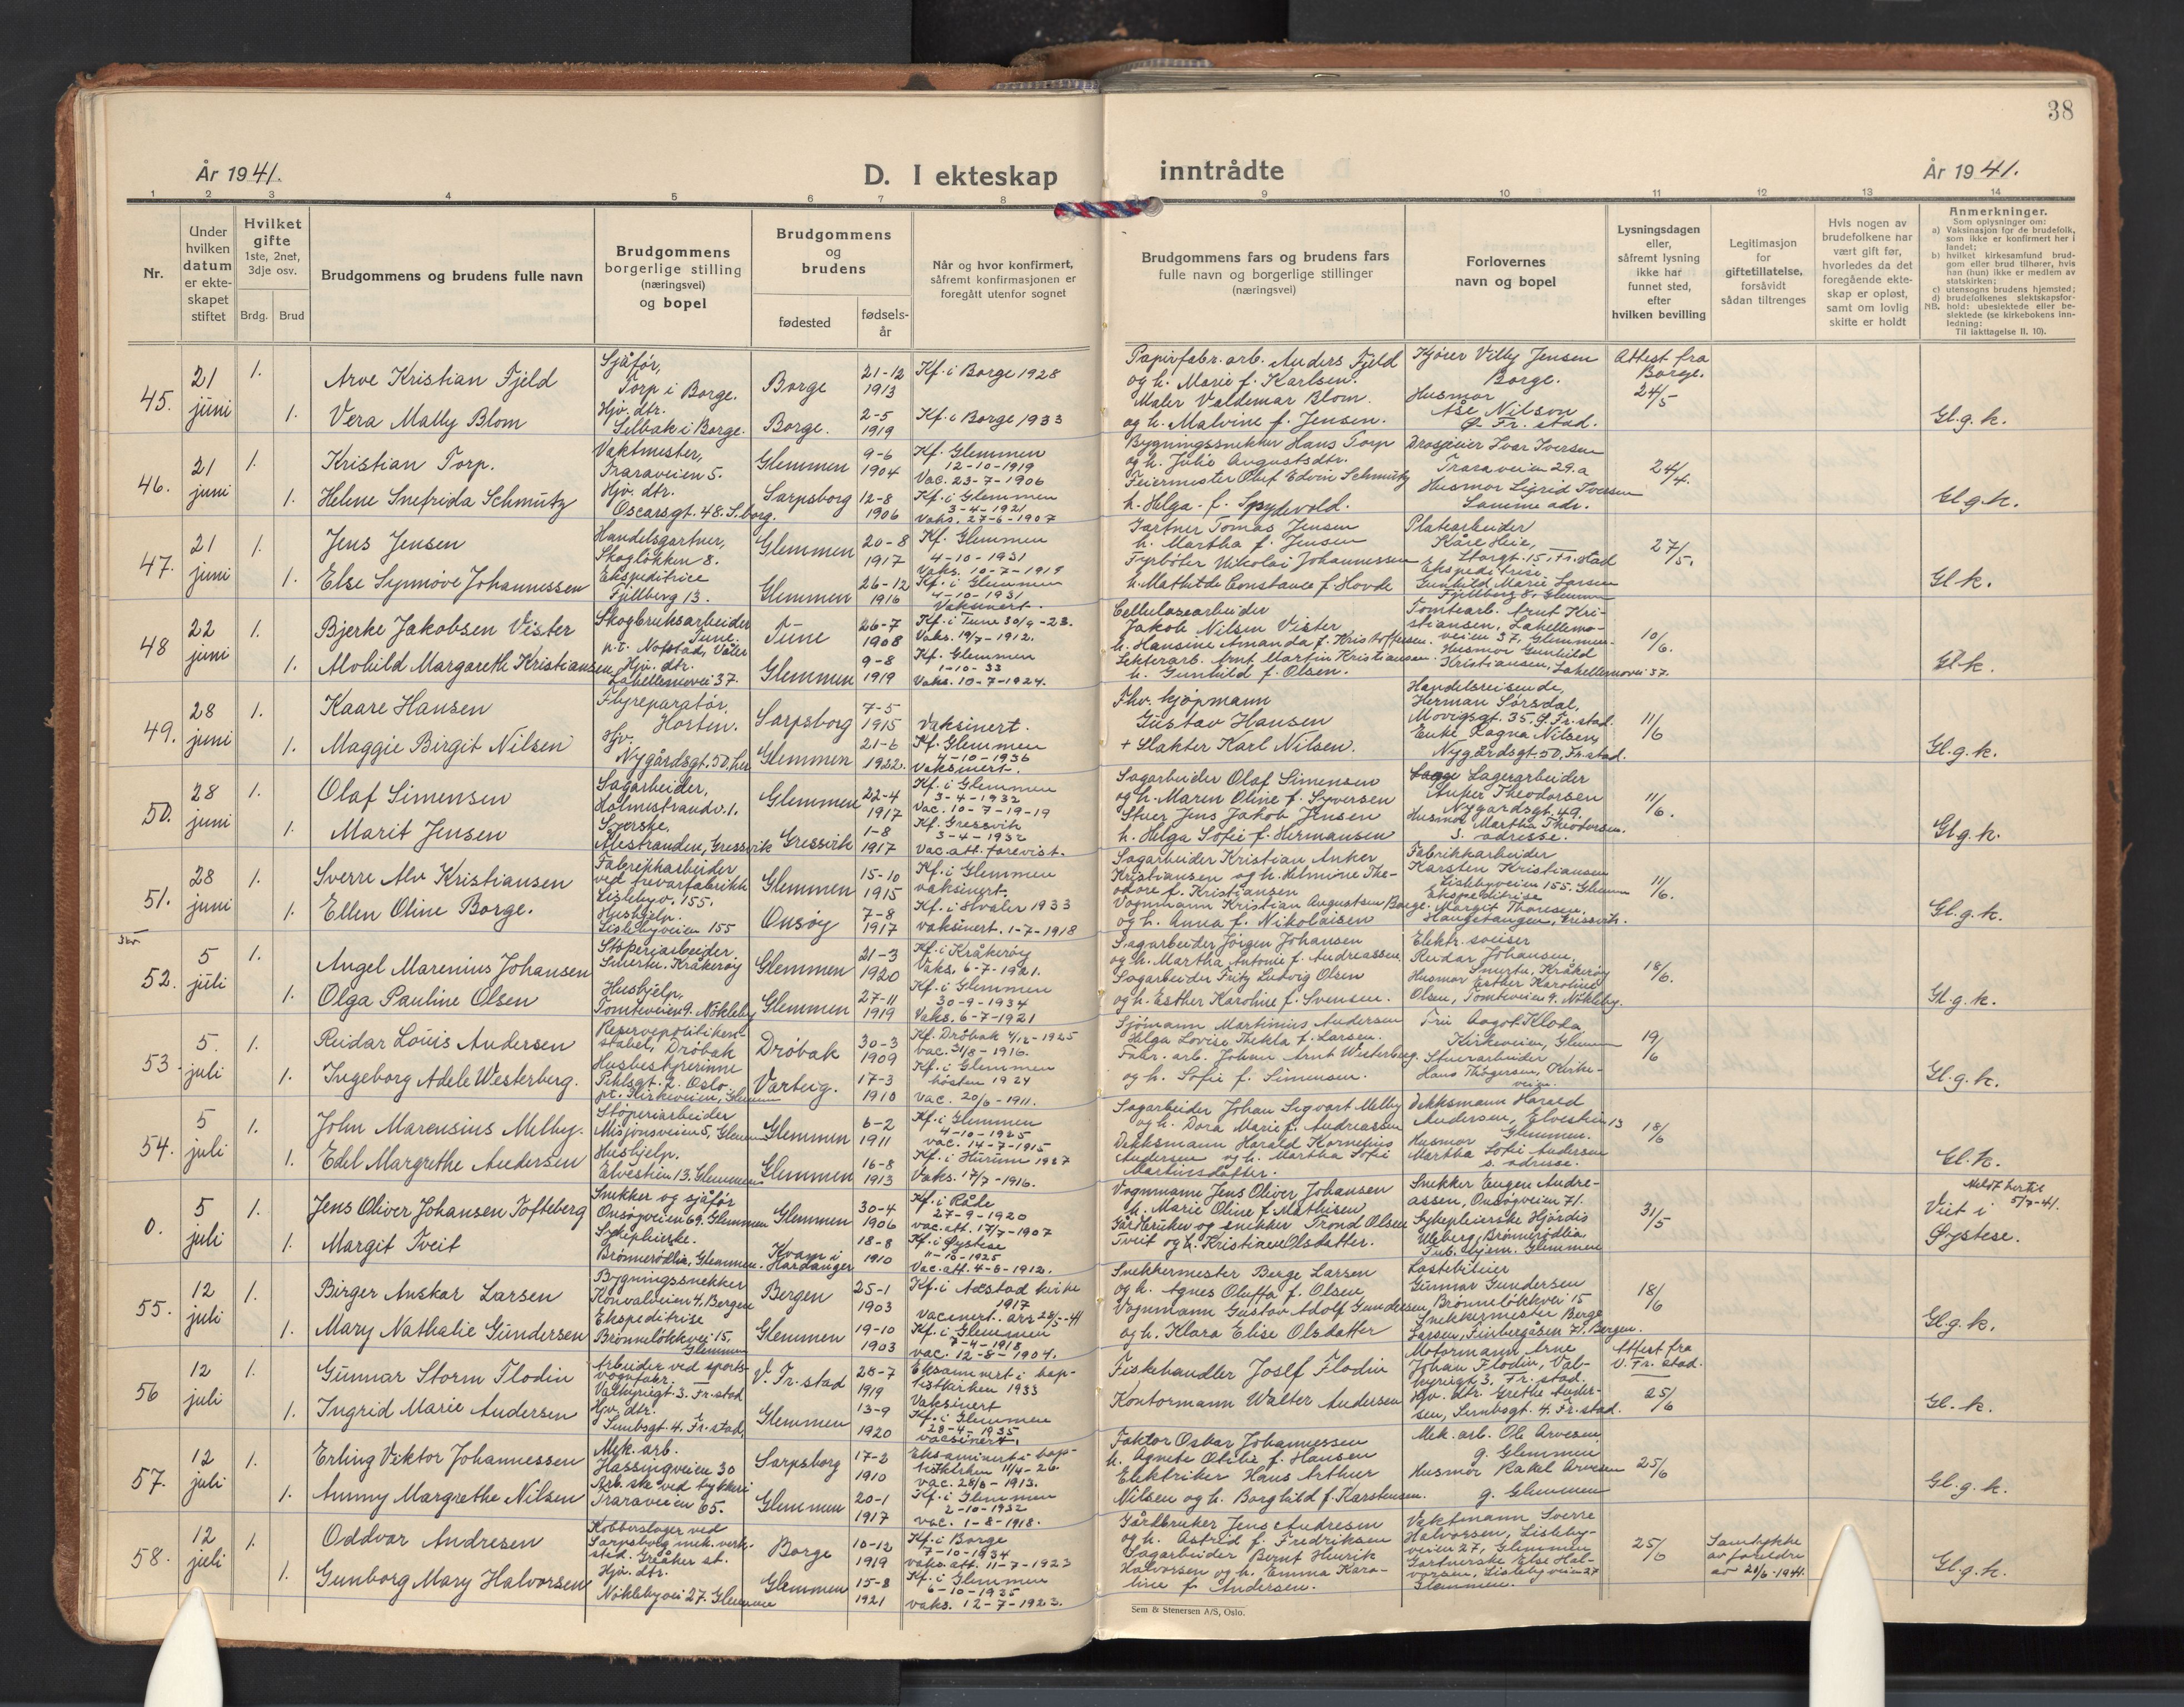 38
År 1941.
D. I ekteskap inntrådte
År 1941.
1 2 3 4 5 6 7 8 9 10 11 12 13 14
Nr.
Under hvilken datum er ekteskapet stiftet
Hvilket gifte 1ste, 2net, 3dje osv.
Brdg. Brud
Brudgommens og brudens fulle navn
Brudgommens borgerlige stilling (næringsvei) og bopel
Brudgommens og brudens
fødested
fødselsår
Når og hvor konfirmert, såfremt konfirmasjonen er foregått utenfor sognet
Brudgommens fars og brudens fars fulle navn og borgerlige stillinger (næringsvei)
Forlovernes navn og bopel
Lysningsdagen eller, såfremt lysning ikke har funnet sted, efter hvilken bevilling
Legitimasjon for giftetillatelse, forsåvidt sådan tiltrenges
Hvis nogen av brudefolkene har vært gift før, hvorledes da det foregående ekteskap er opløst, samt om lovlig skifte er holdt
Anmerkninger.
Som oplysninger om:
a) Vaksinasjon for de brudefolk, som ikke er konfirmert her i landet;
b) hvilket kirkesamfund brudgom eller brud tilhører, hvis han (hun) ikke er medlem av statskirken;
c) utensogns brudens hjemsted;
d) brudefolkenes slektskapsforhold: ubeslektede eller beslektede (se kirkebokens innledning:
NB. Til iakttagelse II. 10).
45. 21 juni 1. Arve Kristian Fjeld
Sjåfør, Torp i Borge.
Borge 21-12 1913 Kf. i Borge 1928
Papirfabr. arb. Anders Fjeld og h. Marie f. Karlsen.
Kjører Villy Jensen Borge.
Attest fra Borge. 24/5
1. Vera Mally Blom
Hjv. dtr. Selbak i Borge.
Borge. 2-5 1919 Kf. i Borge 1933
Maler Valdemar Blom og h. Malvine f. Jensen.
Husmor Åse Nilson Ø. Fr. stad.
Gl. g. k.
46. 21 juni 1. Kristian Torp.
Vaktmester, Traraveien 5.
Glemmen 9-6 1904 Kf. Glemmen 12-10-1919 Vac. 23-7-1906
Bygningssnekker Hans Torp og h. Julie Augustsdtr.
Drosjeeier Ivar Iversen Traraveien 29.a
24/4.
1. Helene Snefrida Schmütz
Hjv. dtr. Oscarsgt. 48. S.borg.
Sarpsborg 12-8 1906 Kf. i Glemmen 3-4-1921 Vaks. 27-6-1907
Feiermester Oluf Edvin Schmütz h. Helga f. Spydevold.
Husmor Sigrid Iversen Samme adr.
Gl. g. k.
47. 21 juni 1. Jens Jensen
Handelsgartner, Skogløkken 8.
Glemmen 20-8 1917 Kf. Glemmen 4-10-1931 Vaks. 10-7-1919
Gartner Tomas Jensen h. Martha f. Jensen
Platearbeider Kåre Heie, Storgt. 15, Fr.stad
27/5.
1. Else Synnøve Johannessen
Ekspeditrice Fjellberg 13.
Glemmen 26-12 1916 Kf. i Glemmen 4-10-1931 Vaksinert.
Fyrbøter Nikolai Johannessen h. Mathilde Constance f. Hovde
Ekspeditrise Gunhild Marie Larsen Fjellberg 8, Glemmen
Gl. k.
48 22 juni 1. Bjerke Jakobsen Vister
Skogbruksarbeider Tune. p.t. Nofstad, Våler
Tune 26-7 1908 Kf. i Tune 30/9-23. Vaks. 19/7-1912.
Cellulosearbeider Jakob Nilsen Vister h. Hansine Amanda f. Kristoffersen.
Tomtearb. Arnt Kristiansen, Lahellemoveien 37, Glemmen.
10/6.
1. Alvhild Margareth Kristiansen
Hjv. dtr. Lahellemovei 37.
Glemmen 9-8 1919 Kf. Glemmen 1-10-33 Vaks. 10-7-1924.
Lekterarb. Arnt Martin Kristiansen h. Gunhild f. Olsen.
Husmor Gunhild Kristiansen, Lahellemovei 37.
Gl. k.
49. 28 juni 1. Kaare Hansen
Flyreparatør, Horten.
Sarpsborg 7-5 1915 Vaksinert.
Fhv. kjøpmann Gustav Hansen
Handelsreisende, Herman Sørsdal, Movigsgt. 35. Ø. Fr. stad.
11/6
1. Maggie Birgit Nilsen
Hjv. Nygårdsgt. 50. her
Glemmen 21-6 1922. Kf. Glemmen 4-10-1936 Vaksinert.
+ Slakter Karl Nilsen.
Enke Ragna Nilsen, Nygårdsgt. 50. Fr.stad.
Gl. g. k.
50. 28 juni 1. Olaf Simensen
Sagarbeider, Holmestrandv. 1.
Glemmen 22-4 1917 Kf. i Glemmen 3-4-1932 Vac. 10-7-19-19
Sagarbeider Olaf Simensen og h. Maren Oline f. Syversen
Lagerarbeider Anker Theodorsen Nygårdsgt. 49.
11/6.
1. Marit Jensen
Syerske. Ålestranden, Gressvik
Gressvik 1-8 1917 Kf. Gressvik 3-4-1932 Vac. att. forevist.
Stuer Jens Jakob Jensen h. Helga Sofie f. Hermansen
Husmor Martha Theodorsen. s. adresse.
Gl. g. k.
51. 28 juni 1. Sverre Alv Kristiansen
Fabrikkarbeider ved trevarfabrikk Lislebyv. 155.
Glemmen 15-10 1915 Kf. i Glemmen vaksinert.
Sagarbeider Kristian Anker Kristiansen og h. Helmine Theodore f. Kristiansen
Fabrikkarbeider Karsten Kristiansen Lislebyveien 155. Glemmen
11/6.
1. Ellen Oline Borge.
Hushjelp. Lislebyveien 155
Onsøy 7-8 1917 Kf. i Hvaler 1933 vaksinert. 1-7-1918
Vognmann Kristian Augustsen Borge. og h. Anna f. Nikolaisen
Ekspeditrise Margit Thoresen, Haugetangen, Gressvik.
Gl. g. k.
52. 5 juli 1. Angel Marenius Johansen
Støperiarbeider. Smertu. Kråkerøy
Glemmen 21-3 1920 Kf. i Kråkerøy Vaks. 6-7-1921.
Sagarbeider Jørgen Johansen og h. Martha Antonie f. Andreassen
Elektr. sveiser Reidar Johansen, Smertu, Kråkerøy
18/6.
1. Olga Pauline Olsen
Hushjelp, Tomteveien 9. Nøkleby
Glemmen 27-11 1919 Kf. i Glemmen 30-9-1934 Vaks. 6-7-1921
Sagarbeider Fritz Ludvig Olsen og h. Esther Karoline f. Svensen.
Husmor Esther Karoline Olsen, Tomteveien 9. Nøkleby.
Gl. g. k.
53. 5. juli 1. Reidar Louis Andersen
Reservepolitikonstabel, Drøbak
Drøbak 30-3 1909 Kf. Drøbak 4/12-1925 vac. 31/8-1916.
Sjømann Martinius Andersen Helga Lovise Thekla f. Larsen.
Fru Aagot Klota, Kirkeveien, Glemmen
19/6
1. Ingeborg Adele Westerberg.
Husbestyrerinne Pihlsgt. 2. Oslo. pt. Kirkeveien, Glemmen
Varteig. 17-3 1910 Kf. i Glemmen høsten 1924 vac. 20/6-1911.
Fabr. arb. Johan Arnt Westerberg. og h. Sofie f. Simensen.
Stuerarbeider Hans Thøgersen, Kirkeveien.
Gl. g. k.
54. 5 juli 1. John Marensius Melby.
Støperiarbeider Misjonsveien 5, Glemmen
Glemmen 6-2 1911 Kf. i Glemmen 4-10-1925 vac. 14-7-1915
Sagarbeider Johan Sigvart Melby og h. Dora Marie f. Andreassen
Dekksmann Harald Andersen, Elvestien 13 Glemmen.
18/6
1. Edel Margrethe Andersen
Hushjelp. Elvestien 13. Glemmen
Glemmen 16-8 1913 Kf. i Hurum 1927 Vaks. 17/7-1916.
Dekksmann Harald Kornelius Andersen og h. Martha Sofie Martinsdatter.
Husmor Martha Sofie Andersen s. adresse.
Gl. k.
0. 5 juli 1. Jens Oliver Johansen Tofteberg
Snekker og sjåfør Onsøyveien 69. Glemmen
Glemmen 30-4 1906 Kf. i Råde 27-9-1920 vac. att. 17/7-1907
Vognmann Jens Oliver Johansen h. Marie Oline f. Mathisen,
Snekker Eugen Andreassen, Onsøyveien 71.
31/5
1. Margit Tveit
Sykepleierske. Brønnerødlia, Glemmen.
Kvam i Hardanger 18-8 1910 Kf. i Øystese 11-10-1925 Vac. att. 4-6-1912.
Gårdbruker og snekker Trond Olsen Tveit og h. Kristine Olsdatter.
Sykepleierske Hjørdis Uleberg, Brønnerødlia, Tub. hjem. Glemmen
Meldt hertil 5/7-41. Viet i Øystese.
55. 12 juli 1. Birger Anskar Larsen
Bygningssnekker Konvalveien 4. Bergen
Bergen 25-1 1903 Kf. i Årstad kirke 1917 Vacinert. arr 28/5-41
Snekkermester Berge Larsen og h. Agnes Oluffa f. Olsen
Lastebileier Gunnar Gundersen Brønneløkkvei 15
18/6
1. Mary Nathalie Gundersen
Ekspeditrise Brønneløkkvei 15, Glemmen
Glemmen 19-10 1903 Kf. i Glemmen 7-4-1918 vac. 12-8-1904.
Vognmann Gustav Adolf Gundersen, og h. Klara Elise Olsdatter
Snekkermester Berge Larsen, Finbergåsen 71. Bergen.
Gl. g. k.
56 12 juli 1. Gunnar Storm Flodin
Arbeider ved sportsvognfabr. Valkyriegt. 3. Fr.stad
V. Fr. stad 28-7 1919 Eksaminert i baptistkirken 1933 Vaksinert
Fiskehandler Josef Flodin
Motormann Arne Johan Flodin, Valkyriegt 3. Fr. stad.
Attest fra V. Fr. stad. 25/6
1. Ingrid Marie Andersen
Hjv. dtr. Lundsgt. 4. Fr. stad,
Glemmen 13-9 1920 Kf. i Glemmen 28-4-1935 vacsinert.
Kontormann Walter Andersen
Hjv. dtr. Grethe Andersen, Lundsgt. 4. Fr. stad.
Gl. k.
57. 12 juli 1. Erling Viktor Johannessen
Mek. arb. Hassingveien 30
Sarpsborg 17-2 1910 Eksaminert i baptistkirken 11/4-26. vac. 28/8-1913.
Faktor Oskar Johannessen h. Agnete Otilie f. Hansen
Mek. arb. Ole Arvesen g. Glemmen
25/6
1. Ammy Margrethe Nilsen
Arb. ske ved trykkeri Traraveien 65.
Glemmen 20-1 1917 Kf. i Glemmen 2-10-1932 vac. 1-8-1918.
Elektriker Hans Arthur Nilsen og h. Borghild f. Karstensen.
Husmor Rakel Arvesen g. Glemmen
Gl. g. k.
58. 12 juli 1. Oddvar Andresen
Kobberslager ved Sarpsborg mek. verksted. Greåker st.
Borge 10-12 1919 Kf. i Borge 7-10-1934 vaks. att. 11-7-1923
Gårdbruker Jens Andresen og h. Astrid f. Fredriksen
Vaktmann Sverre Halvorsen, Lislebyveien 27, Glemmen
25/6
Samtykke av foreldre av 28/6-1941.
1. Gunborg Mary Halvorsen
Hjv. dtr. Nøklebyvei 27. Glemmen
Glemmen 15-8 1921 Kf. i Glemmen 6-10-1935 vaks. 12-7-1922.
Sagarbeider Bernt Henrik Halvorsen og h. Emma Karoline f. Andersen.
Gartnerske Else Halvorsen, Lislebyveien 27 Glemmen.
Gl. g. k.
Sem & Stenersen A/S, Oslo.